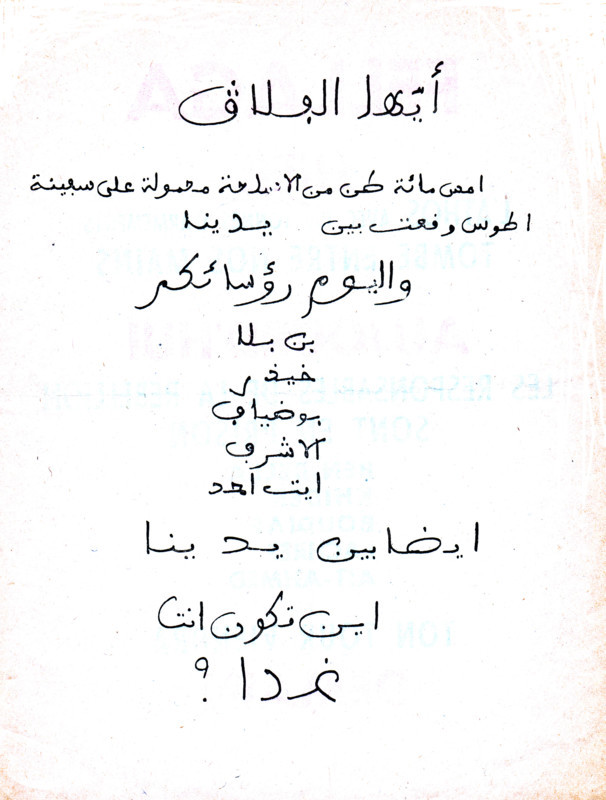 أيّها الفلاق
امس مائة طن من الاسلحة محمولة على سفينة
اطوس وقعت بين يدينا
واليوم رؤسائكم
بن بلا
خيذر
بوضياف
الاشرف
ايت احمد
ايضا بين يدينا
اين تكون انت
غدا ؟